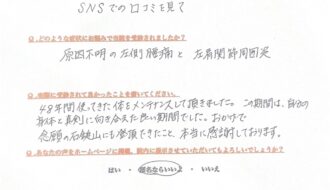 SNSでの口コミを見て
Q.どのような症状にお悩みで当院を受診されましたか?
原因不明の左側腰痛と 左肩関節周囲炎
Q.実際に受診されて良かったことを書いてください。
48年間使ってきた体をメンテナンスして頂きました。この期間は、自分の
身体と真剣に向き合えた良い期間でした。おかげで
念願の石鎚山にも登頂できたこと、本当に感謝しております。
Q.あなたの声をホームページに掲載、院内に掲示させていただいてもよろしいでしょうか?
はい ・ 匿名ならいいよ ・ いいえ